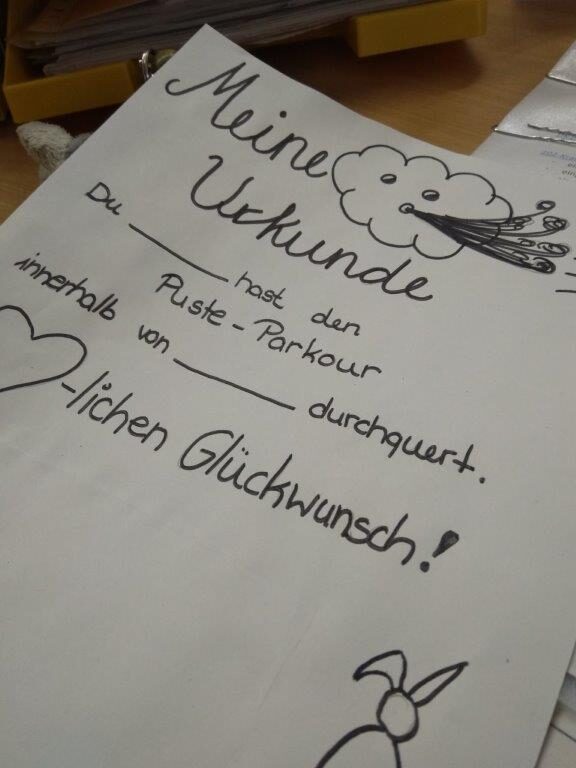 Meine
Urkunde
Du ______ hast den
Puste-Parkour
innerhalb von ______ durchquert.
-lichen Glückwunsch!